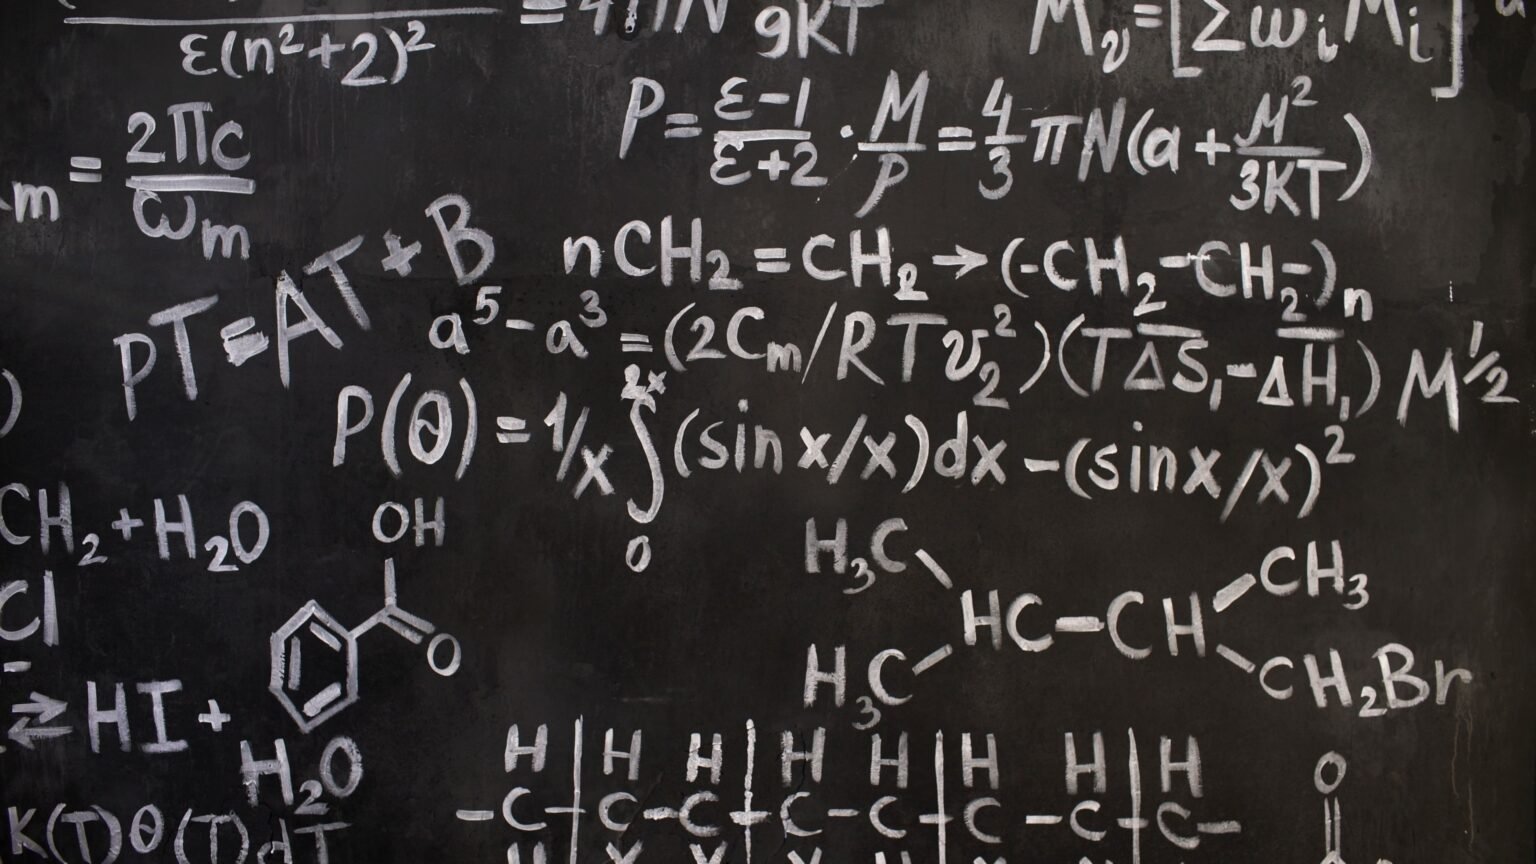 ε(n²+2)²
= 4πN
9KT
Mᵥ=[Σωᵢ Mᵢ]
m = 2πc/ωm
P = ε-1/ε+2 · M/P = 4/3 πN(a + M²/3KT)
PT=AT+B
nCH₂=CH₂→(-CH₂-CH₂-)n
a⁵-a³=(2Cm/RTv₂²)(TΔS₁-ΔH₁)M^1/2
P(θ)=1/x ∫ 2x 0 (sin x/x)dx-(sinx/x)²
CH₂+H₂O
Cl
OH
O
⇄ HI + H₂O
H₃C
H₃C
HC-CH
CH₃
CH₂Br
H H H H H H H H
-C-C-C-C-C-C-C-C-
O
K(T)θ(T)dT